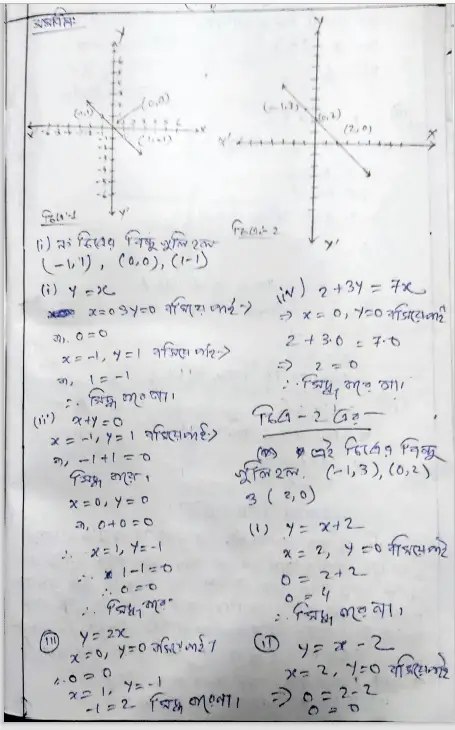 সমাধান:
Y
(-1,1)
(0,0)
(1,-1)
X
Y'
চিত্র-1
Y
(-1,3)
(0,2)
(2,0)
X'
X
Y'
চিত্র-2
(i) নং চিত্রের বিন্দু গুলি হল
(-1,1), (0,0), (1-1)
(i) y=x
x=0 ও y=0 বসিয়ে পাই→
বা, 0=0
x=-1, y=1 বসিয়ে পাই→
বা, 1=-1
∴ সিদ্ধ করে না।
(ii) x+y=0
x=-1, y=1 বসিয়ে পাই→
বা, -1+1=0
সিদ্ধ করে।
x=0, y=0
বা, 0+0=0
∴ x=1, y=-1
∴ 1-1=0
∴ 0=0
∴ সিদ্ধ করে
(iii) y=2x
x=0, y=0 বসিয়ে পাই,
∴ 0=0
x=1, y=-1
-1=2 সিদ্ধ করেনা।
(iv) 2+3y=7x
⇒ x=0, y=0 বসিয়ে পাই
2+3.0=7.0
⇒ 2=0
∴ সিদ্ধ করে না।
চিত্র-2 এর—
এই চিত্রের বিন্দু
গুলি হল. (-1,3), (0,2)
ও (2,0)
(i) y=x+2
x=2, y=0 বসিয়ে পাই
0=2+2
0=4
∴ সিদ্ধ করে না।
(ii) y=x-2
x=2, y=0 বসিয়ে পাই
⇒ 0=2-2
0=0